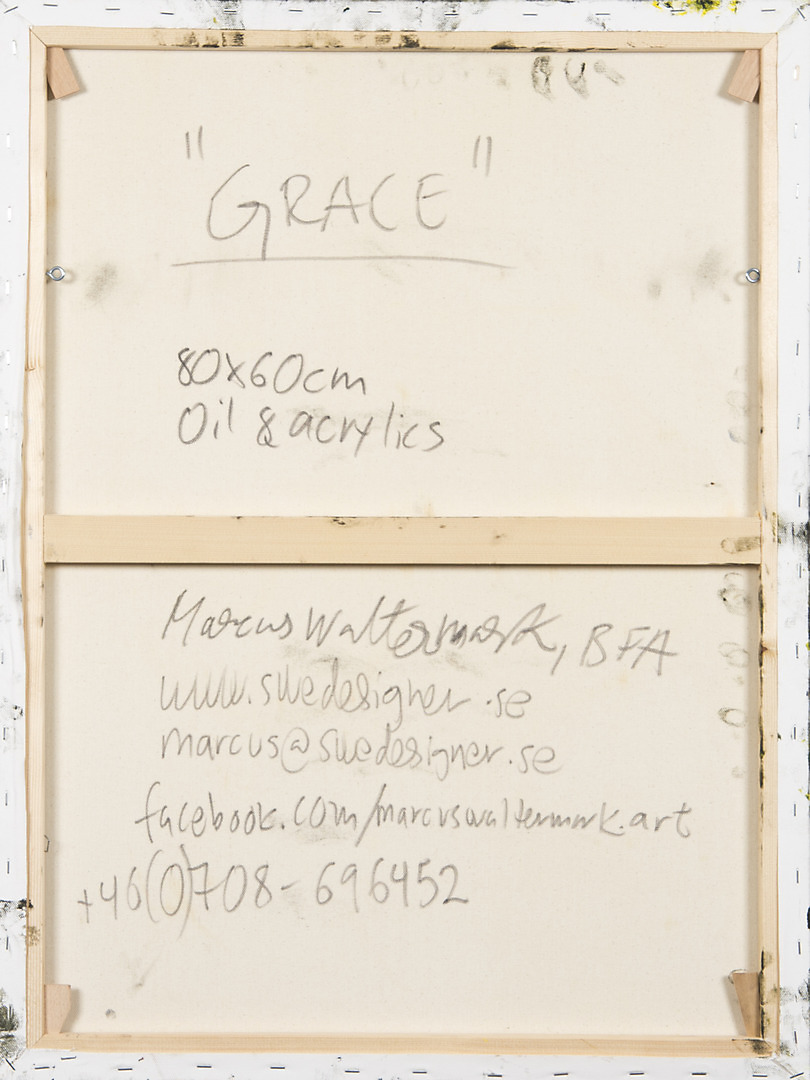 "GRACE"
80x60cm
Oil & acrylics
Marcus Waltermark, BFA
www.swedesigner.se
marcus@swedesigner.se
facebook.com/marcuswaltermark.art
+46(0)708-696452